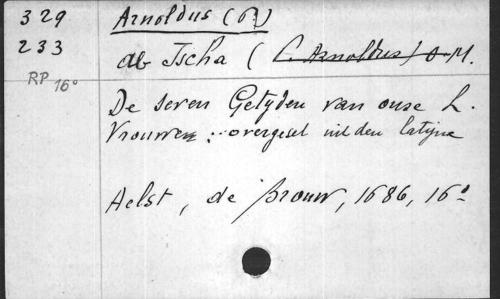 329 Arnoldus (P.)
233 ab Ischa ( C. Arnoldus ) O.M.
RP 16°
De seven Getyden van onse L.
Vrouwen : overgeset uit den latijne
Aelst, de Brouw, 1686, 16°